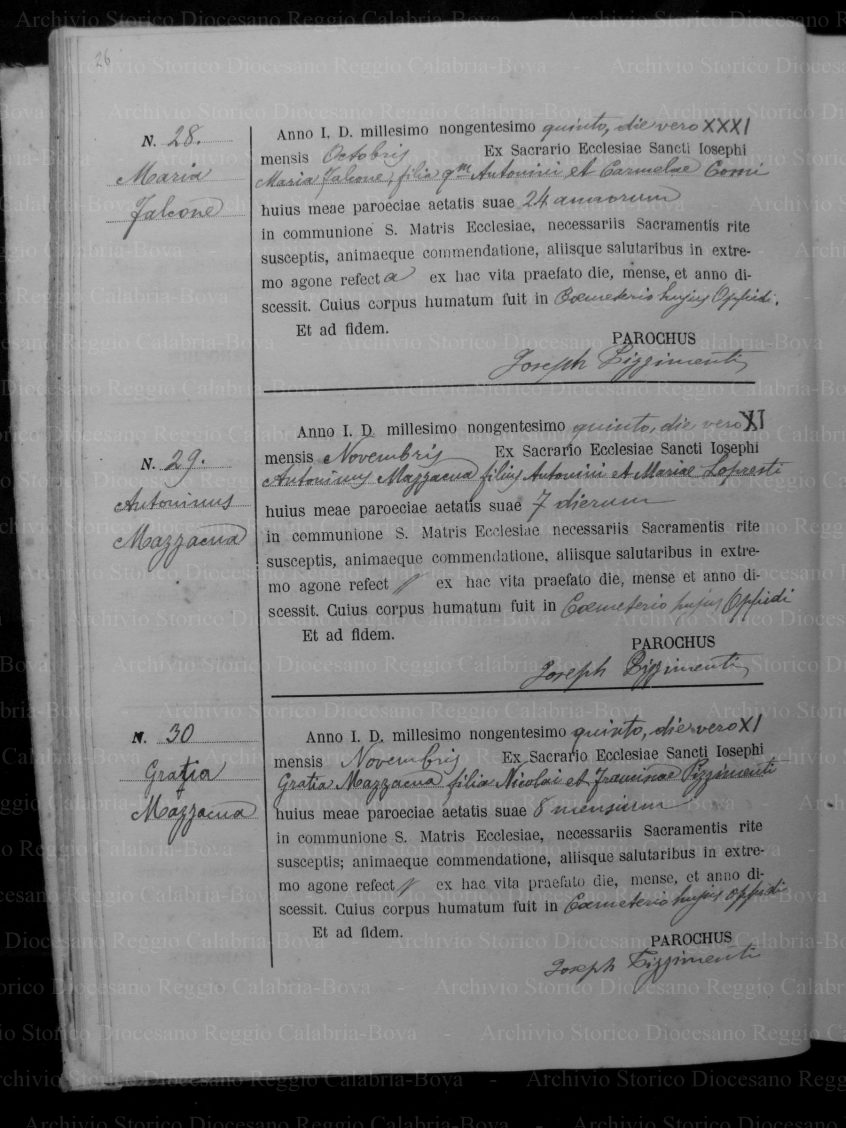 26
N. 28.
Maria
Falcone
Anno I. D. millesimo nongentesimo quinto, die vero XXXI
mensis Octobris Ex Sacrario Ecclesiae Sancti Iosephi
Maria Falcone, filia qm Antonini et Carmelae Comi
huius meae paroeciae aetatis suae 24 annorum
in communione S. Matris Ecclesiae, necessariis Sacramentis rite
susceptis, animaeque commendatione, aliisque salutaribus in extre-
mo agone refecta ex hac vita praefato die, mense, et anno di-
scessit. Cuius corpus humatum fuit in Coemeterio hujus Oppidi.
Et ad fidem.
PAROCHUS
Joseph Pizzimenti
N. 29.
Antoninus
Mazzacua
Anno I. D. millesimo nongentesimo quinto, die vero XI
mensis Novembris Ex Sacrario Ecclesiae Sancti Iosephi
Antoninus Mazzacua filius Antonini et Mariae Lopresti
huius meae paroeciae aetatis suae 7 dierum
in communione S. Matris Ecclesiae necessariis Sacramentis rite
susceptis, animaeque commendatione, aliisque salutaribus in extre-
mo agone refect ex hac vita praefato die, mense et anno di-
scessit. Cuius corpus humatum fuit in Coemeterio hujus Oppidi
Et ad fidem.
PAROCHUS
Joseph Pizzimenti
N. 30
Gratia
Mazzacua
Anno I. D. millesimo nongentesimo quinto, die vero XI
mensis Novembris Ex Sacrario Ecclesiae Sancti Iosephi
Gratia Mazzacua filia Nicolai et Francisae Pizzimenti
huius meae paroeciae aetatis suae 8 mensium
in communione S. Matris Ecclesiae, necessariis Sacramentis rite
susceptis; animaeque commendatione, aliisque salutaribus in extre-
mo agone refect ex hac vita praefato die, mense, et anno di-
scessit. Cuius corpus humatum fuit in Coemeterio hujus oppidi
Et ad fidem.
PAROCHUS
Joseph Pizzimenti
Archivio Storico Diocesano Reggio Calabria-Bova